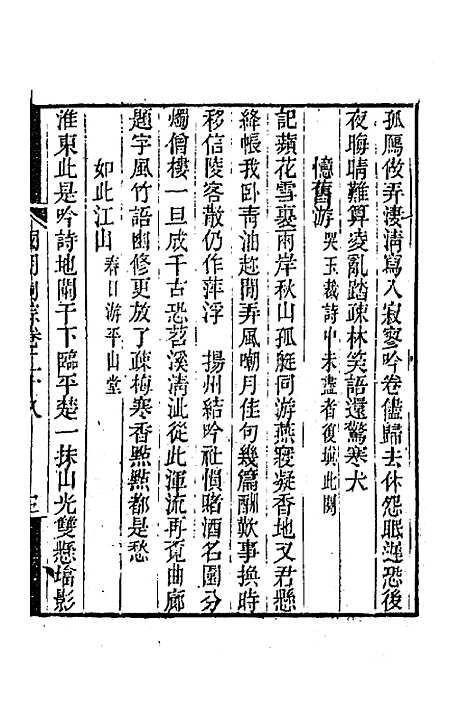 孤鴈做弄淒清寫入寂寥吟卷儘歸去休怨眠遲恐後
夜晦晴難算凌亂踏疎林笑語還驚寒犬
憶舊游 哭玉裁詩中未盡者復塡此闋
記蘋花雪裏雨岸秋山孤艇同游燕寢凝香地又君懸
絳帳我臥靑油趂閒弄風嘲月佳句幾篇酬歎事換時
移信陵客散仍作萍浮 揚州結吟社慣賭酒名園分
燭僧樓一旦成千古恐苕溪淸沚從此渾流再覓曲廊
題字風竹語幽修更放了疎梅寒香點點都是愁
如此江山 春日游平山堂
淮東此是吟詩地闌干下臨平楚一抹山光雙懸墖影
國朝詞綜卷二十八